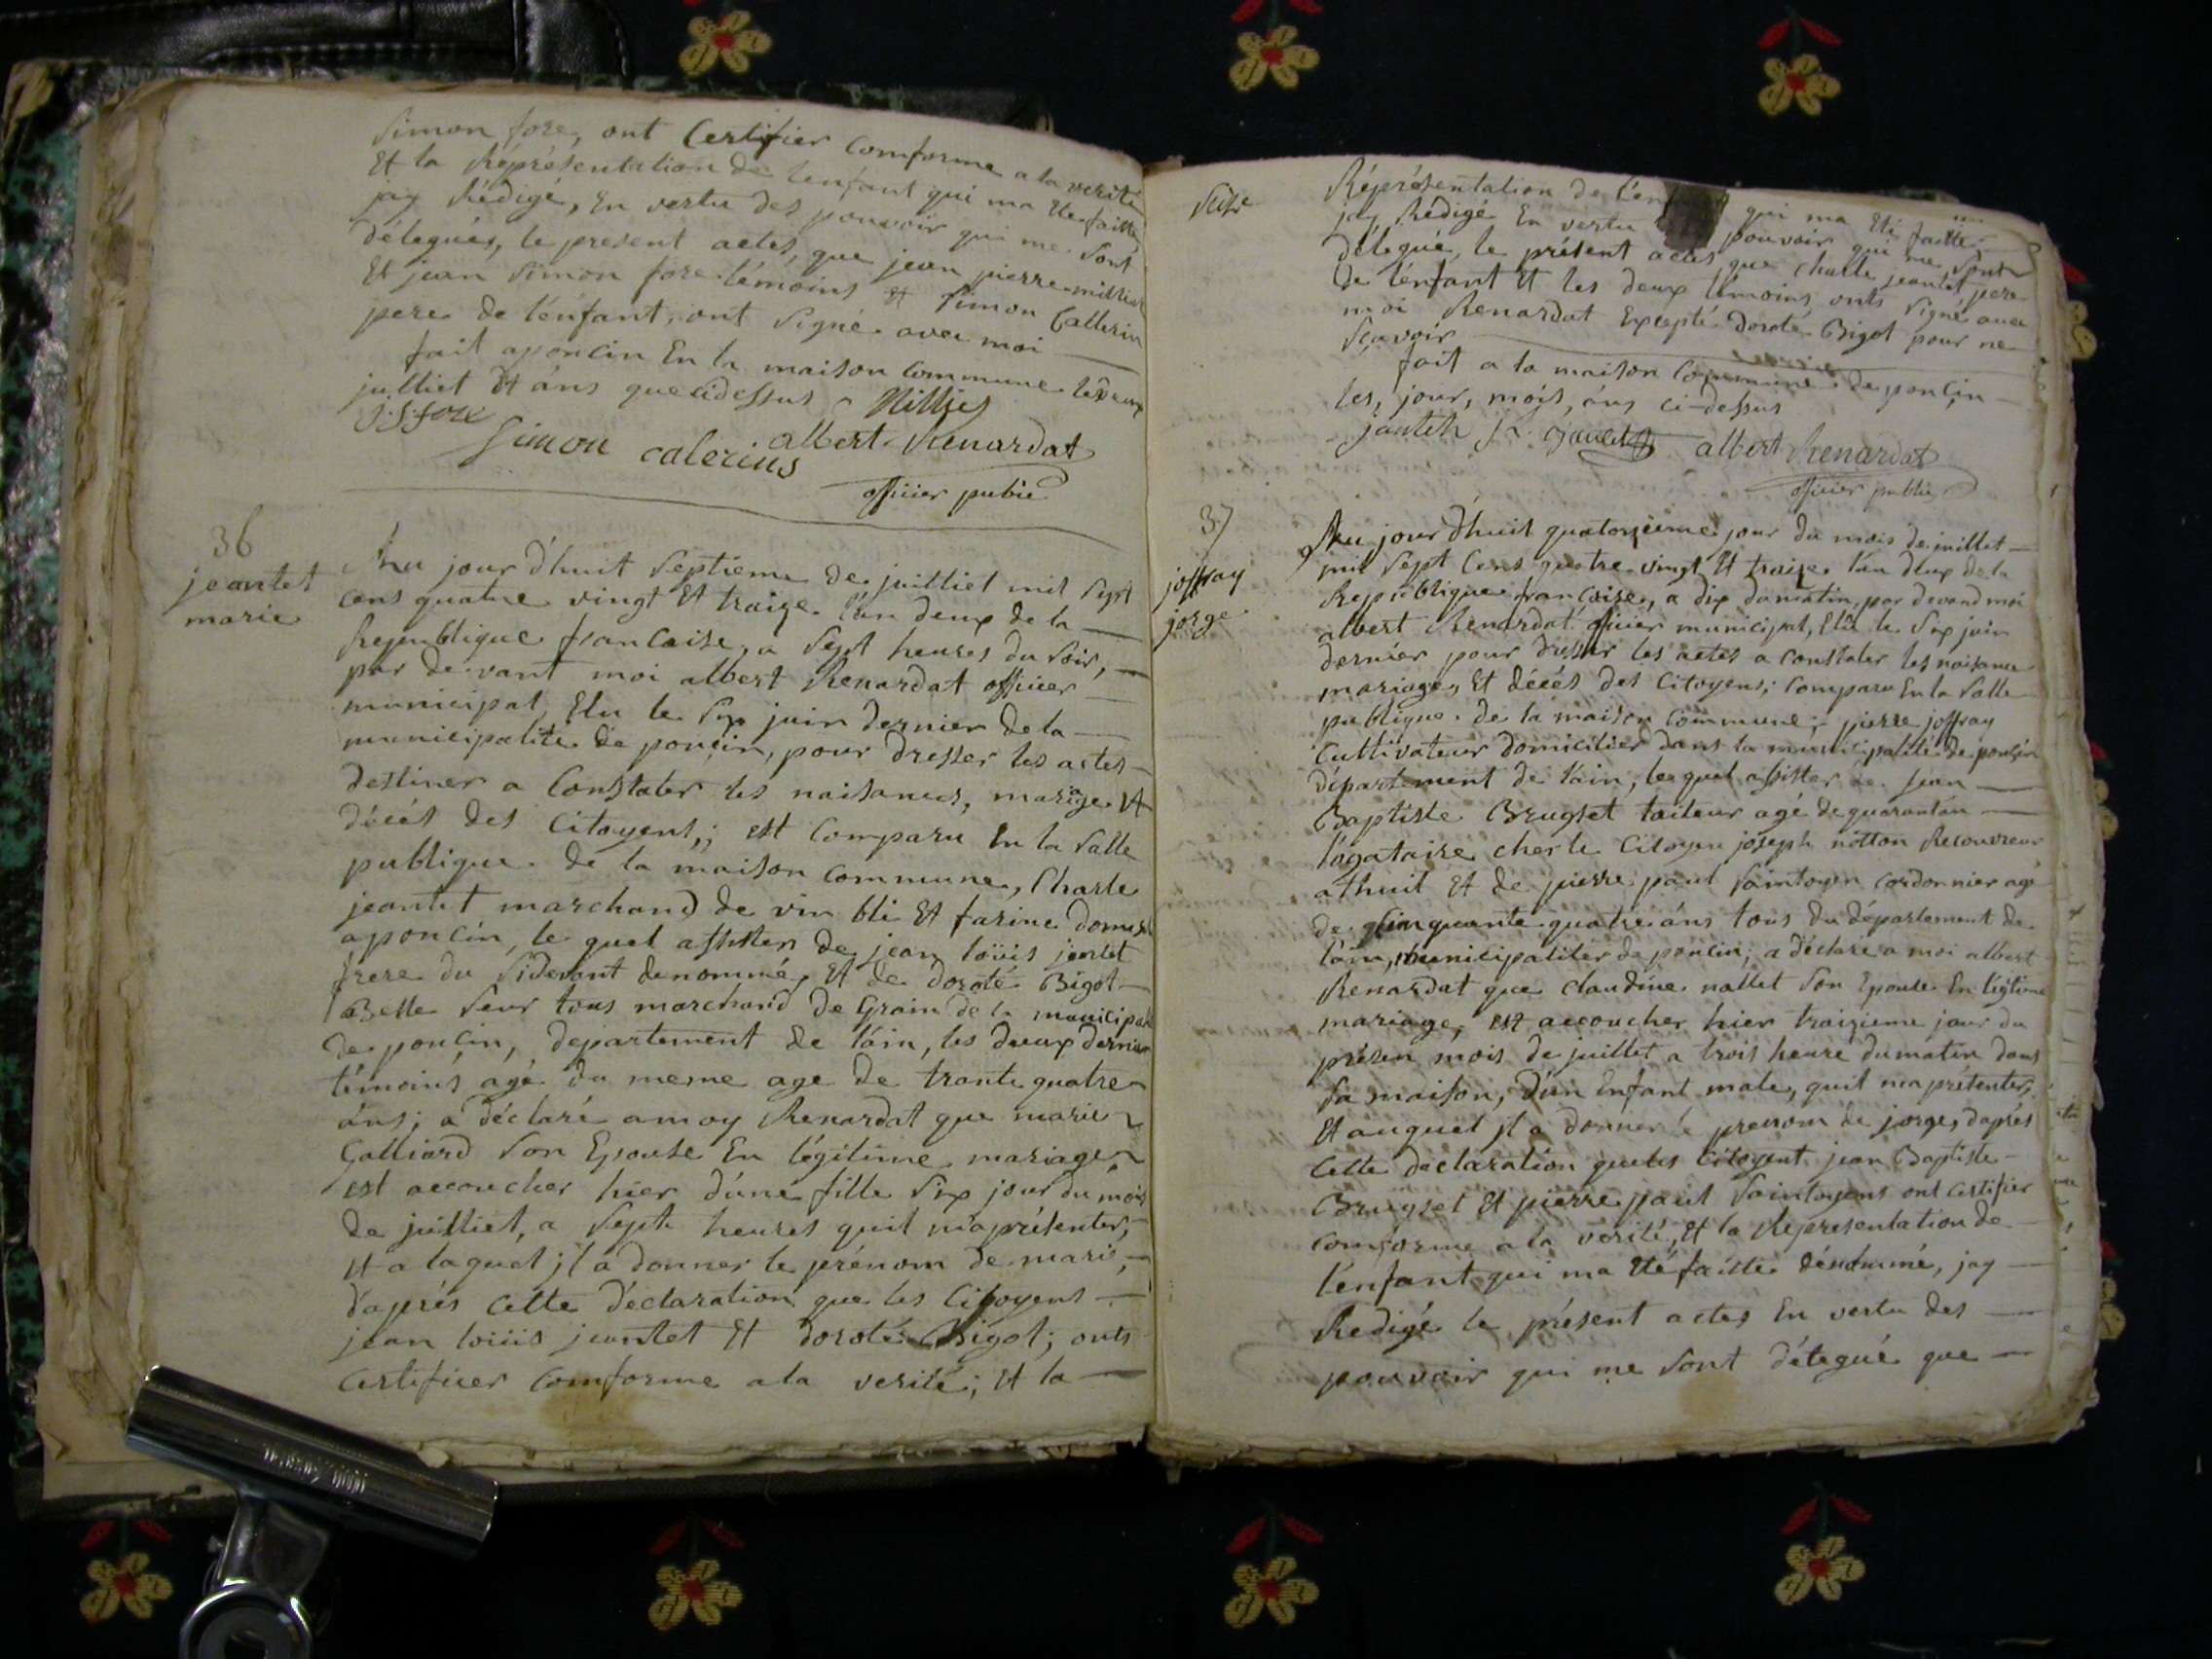 Simon foze, ont Certifier Comforme a la verité
Et la Réprésentation de lenfant qui ma Ete faitte
jay Rédigé, En vertu des pouvoir qui me sont
délegués, le present actes, que jean pierre millie
Et jean Simon foze témoins Et Simon Callerin
pere de l'énfant, ont signé avec moi
fait aponcin En la maison Commune le deux
julliet Et áns que cidessus Millies
j. s. foze
Simon calerins albert Renardat
officier public
36
jeantet
marie
Au jour d'huit Septieme de juilliet mil sept
cens quatre vingt Et traize l'án deux de la
Republique francaise, a sept heures du soir,
par devant moi albert Renardat officier
municipal, Elu le six juin dernier de la
municipalité de poncin, pour dresser les actes
destiner a Constater les naisances, mariage Et
décés des Citoyens; est Comparu En la salle
publique de la maison commune, Charle
jeantet marchand de vin blé Et farine
aponcin, le quel assister de jean loüis jantet
frere du sidevant denommé, Et de doroté Bigot
abelle seur tous marchand de Grain de la
de poncin, departement de l'ain, les deux dernier
témoins agé du meme age de trante quatre
áns; a déclaré amoy Renardat que marie
Galliard son Epouse En légitime mariage
est accoucher hier d'une fille six jour du mois
de juilliet, a sept heures quil m'aprésenter,
Et a laquel jl a donner le prénom de marie,
d'aprés Cette déclaration que les Citoyens
jean loüis jeantet Et doroté Bigot; onts
Certifier Comforme a la verité; Et la
suite
Réprésentation de l'én qui ma Eté faitte
jay Rédigé En vertu pouvoir qui me sont
délegué, le présent actes que charle jeantet pere
de l'énfant Et les deux témoins onts signé avec
moi Renardat Excepté doroté Bigot pour ne
scavoir
fait a la maison Commune de poncin
les, jour, mois, áns ci-dessus
albert Renardat
officier public
37
joffray
jorge
Au jour d'huit quatorzieme jour du mois de juillet
mil sept Cens quatre vingt Et traize l'án deux de la
Republique française, a dix du matin, par devand moi
albert Renardat officier municipal, Elû le six juin
dernier pour dresser les actes a constater les naisance
mariages Et décés des Citoyens; Comparu En la salle
publique de la maison commune; pierre joffray
Cultivateur domicilier dans la municipalité de poncin
département de l'ain, lequel assister de jean
Baptiste Brugset taiteur agé de quarantán
l'ogataire cher le Citoyen joseph notton Recouvreur
athuil Et de pierre paul saintoyen Cordonnier agé
de Cinquante quatre áns tous du département de
l'ain, municipaliter de poncin; a déclare a moi albert
Renardat que claudine nallet son Epouse En légitime
mariage, est accoucher hier traizieme jour du
présen mois de juillet a trois heure du matin dans
sa maison, d'un Enfant male, quil ma prétenter,
Et auquel jl a donner le prenom de jorge, daprés
Cette déclaration que les Citoyent jean Baptiste
Brugset Et pierre paul saintoyens ont Certifier
Comforme a la vérité, Et la Représentation de
l'énfant qui ma Eté faitte dénommé, jay
Redigé le présent actes En vertu des
pouvoir qui me sont délegué que